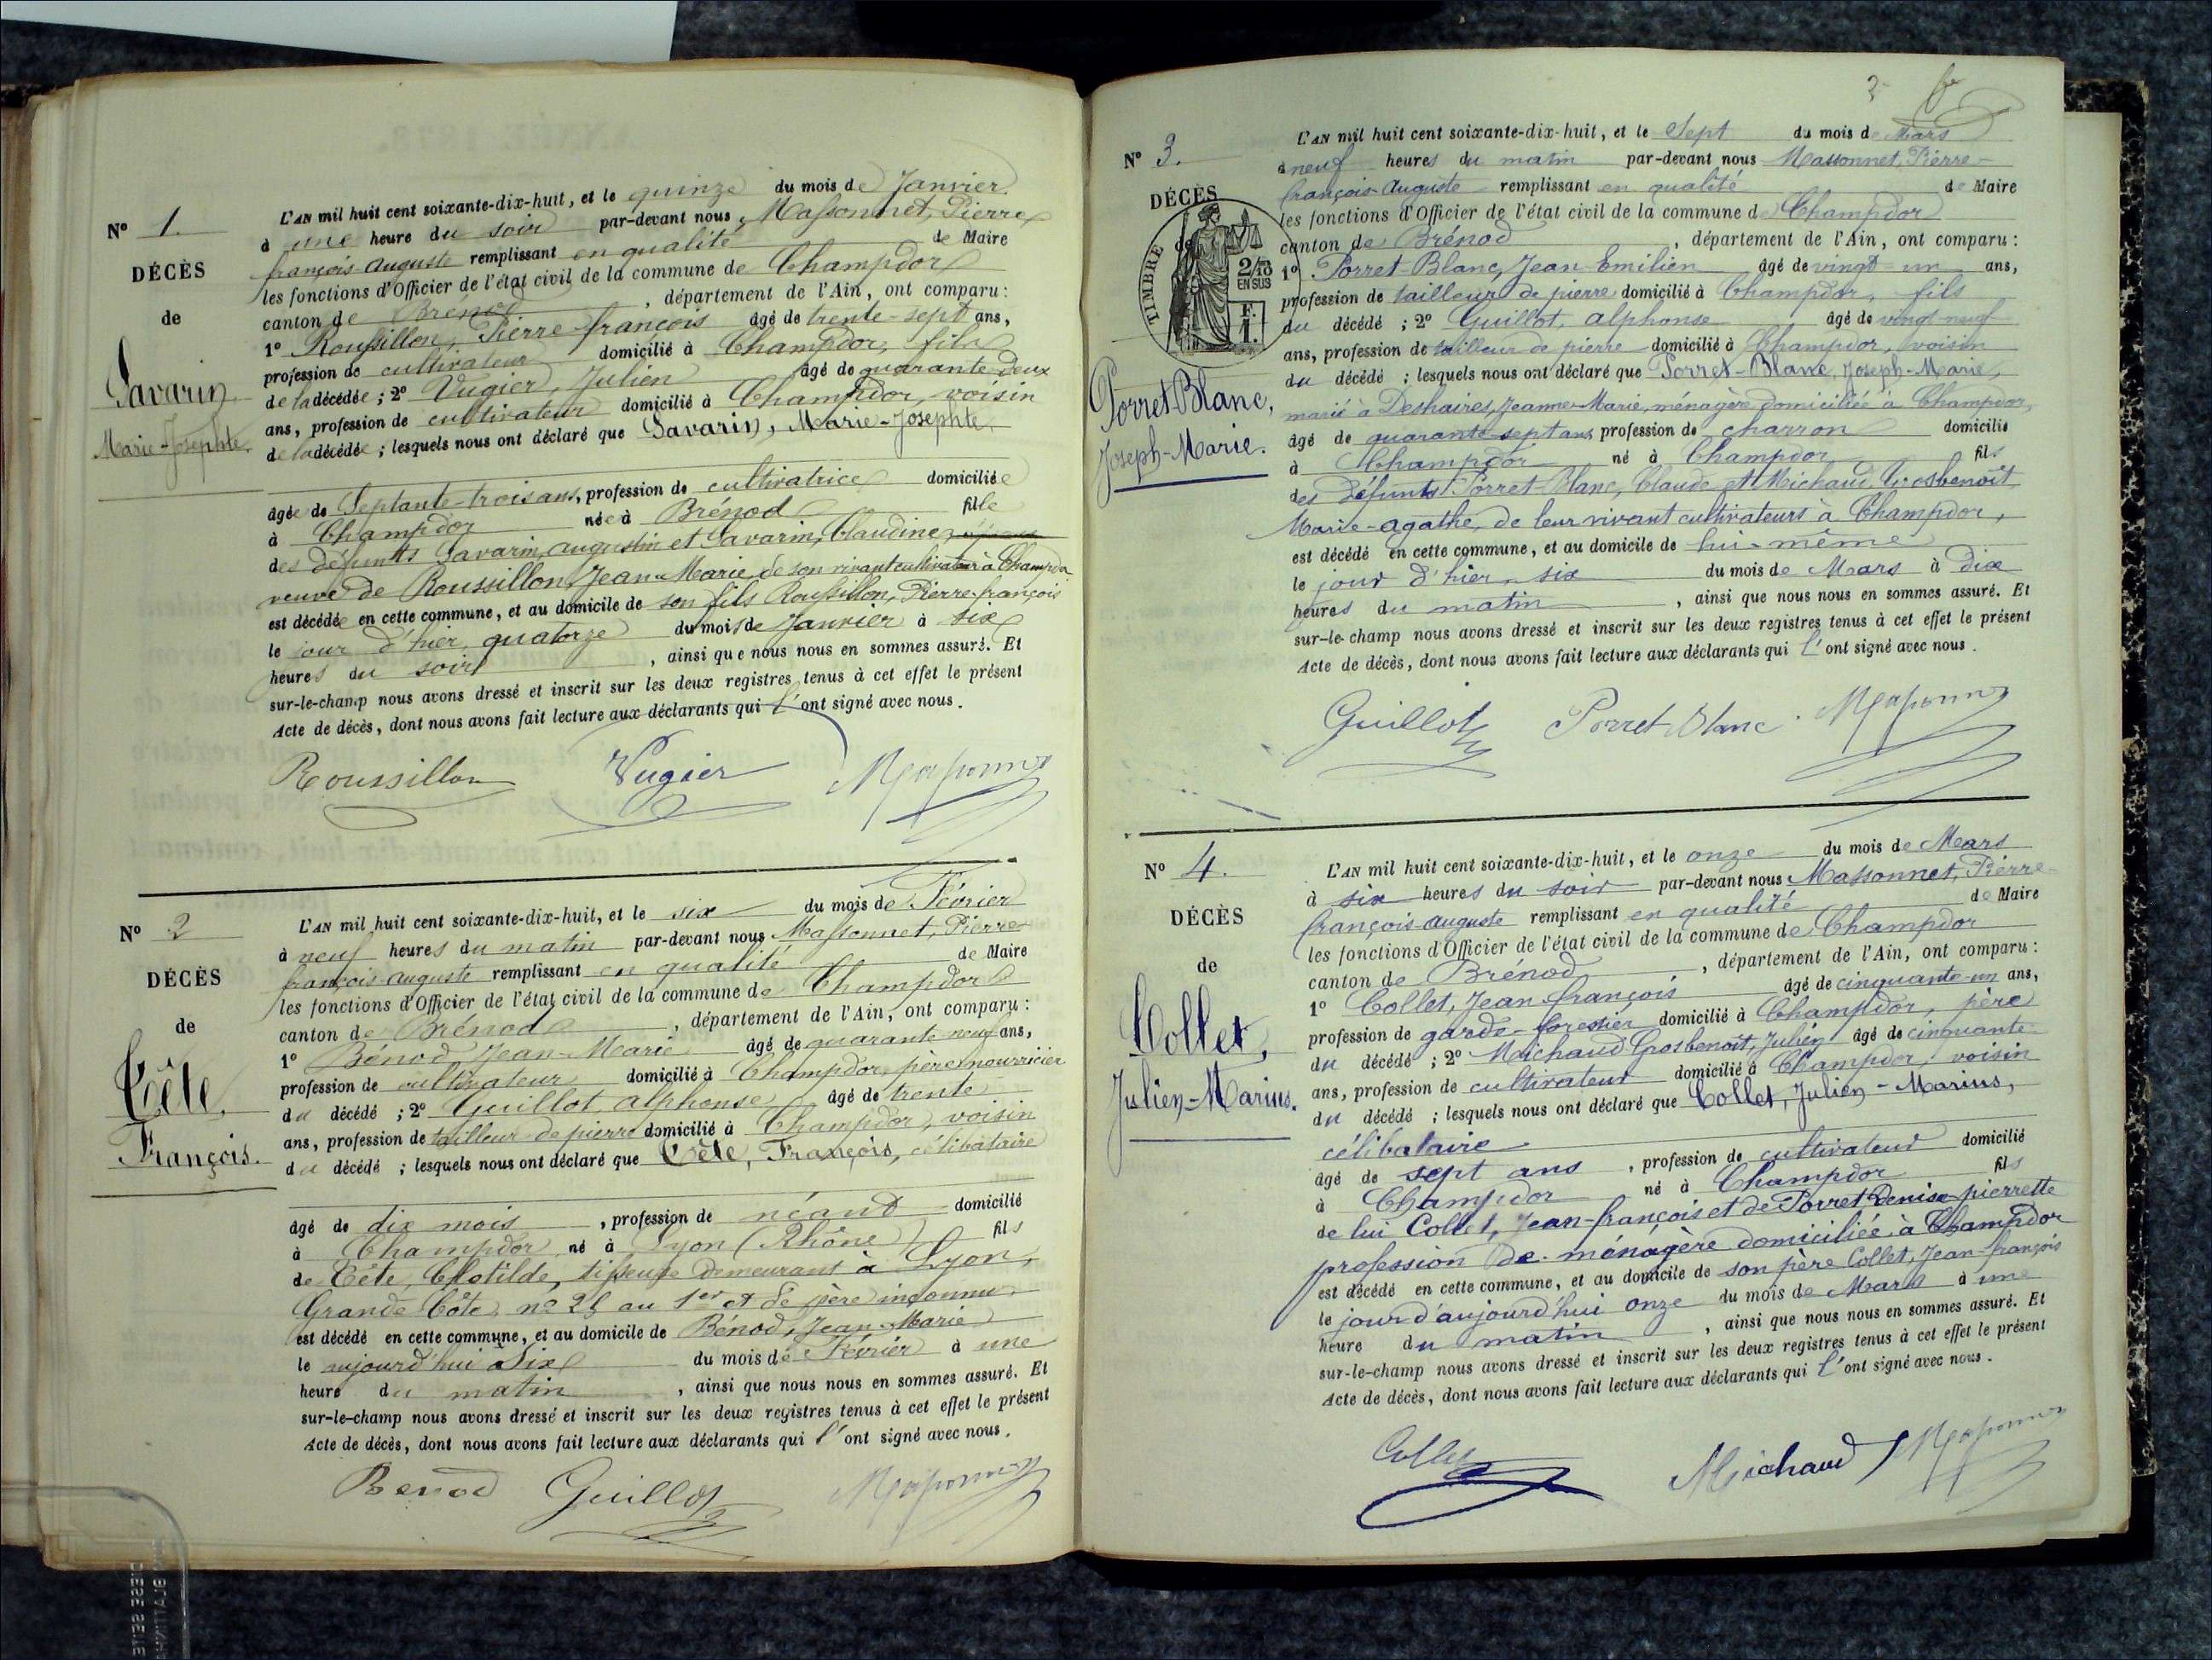 N° 1.
DÉCÈS
de
Savarin
Marie-Josephte.
L'AN mil huit cent soixante-dix-huit, et le quinze du mois de Janvier
à une heure du soir par-devant nous, Massonnet, Pierre
françois-auguste remplissant en qualité de Maire
les fonctions d'Officier de l'état civil de la commune de Champdor
canton de Brénod, département de l'Ain, ont comparu :
1° Roussillon, Pierre-françois âgé de trente-sept ans,
profession de cultivateur domicilié à Champdor, fils
de la décédée ; 2° Vugier, Julien âgé de quarante deux
ans, profession de cultivateur domicilié à Champdor, voisin
de la décédée ; lesquels nous ont déclaré que Savarin, Marie-Josephte,
âgée de Septante-trois ans, profession de cultivatrice domiciliée
à Champdor née à Brénod fille
des défunts Savarin, augustin et Savarin, Claudine,
veuve de Roussillon, Jean-Marie, de son vivant cultivateur à Champdor
est décédée en cette commune, et au domicile de son fils Roussillon, Pierre-françois
le jour d'hier, quatorze du mois de Janvier à six
heures du soir, ainsi que nous nous en sommes assuré. Et
sur-le-champ nous avons dressé et inscrit sur les deux registres tenus à cet effet le présent
Acte de décès, dont nous avons fait lecture aux déclarants qui l'ont signé avec nous.
Roussillon Vugier Massonnet
N° 2
DÉCÈS
de
Tête,
François.
L'AN mil huit cent soixante-dix-huit, et le six du mois de Février
à neuf heures du matin par-devant nous Massonnet, Pierre
françois-auguste remplissant en qualité de Maire
les fonctions d'Officier de l'état civil de la commune de Champdor
canton de Brénod, département de l'Ain, ont comparu :
1° Bénod, Jean-Marie âgé de quarante neuf ans,
profession de cultivateur domicilié à Champdor, père nourricier
du décédé ; 2° Guillot, alphonse âgé de trente
ans, profession de tailleur de pierre domicilié à Champdor, voisin
du décédé ; lesquels nous ont déclaré que Tête, François, célibataire
âgé de dix mois, profession de néant domicilié
à Champdor né à Lyon (Rhône) fils
de Tête, Clotilde, tisseuse demeurant à Lyon,
Grande Côte, n° 25 au 1er et de père inconnu
est décédé en cette commune, et au domicile de Bénod, Jean-Marie
le aujourd'hui à six du mois de Février à une
heure du matin, ainsi que nous nous en sommes assuré. Et
sur-le-champ nous avons dressé et inscrit sur les deux registres tenus à cet effet le présent
Acte de décès, dont nous avons fait lecture aux déclarants qui l'ont signé avec nous.
Benod Guillot Massonnet
N° 3.
DÉCÈS
de
TIMBRE
2/10
EN SUS
F.
1.
Porret Blanc,
Joseph-Marie.
L'AN mil huit cent soixante-dix-huit, et le Sept du mois de Mars
à neuf heures du matin par-devant nous Massonnet, Pierre-
françois-auguste remplissant en qualité de Maire
les fonctions d'Officier de l'état civil de la commune de Champdor
canton de Brénod, département de l'Ain, ont comparu :
1° Porret-Blanc, Jean-Emilien âgé de vingt-un ans,
profession de tailleur de pierre domicilié à Champdor, fils
du décédé ; 2° Guillot, alphonse âgé de vingt-neuf
ans, profession de tailleur de pierre domicilié à Champdor, voisin
du décédé ; lesquels nous ont déclaré que Porret-Blanc, Joseph-Marie,
marié à Deshaires, Jeanne-Marie, ménagère domiciliée à Champdor,
âgé de quarante-sept ans, profession de charron domicilié
à Champdor né à Champdor fils
des défunts Porret-Blanc, Claude et Michaud Grosbenoit
Marie-agathe, de leur vivant cultivateurs à Champdor,
est décédé en cette commune, et au domicile de lui-même
le jour d'hier, six du mois de Mars à Dix
heures du matin, ainsi que nous nous en sommes assuré. Et
sur-le-champ nous avons dressé et inscrit sur les deux registres tenus à cet effet le présent
Acte de décès, dont nous avons fait lecture aux déclarants qui l'ont signé avec nous.
Guillot Porret-Blanc. Massonnet
N° 4.
DÉCÈS
de
Collet,
Julien-Marius.
L'AN mil huit cent soixante-dix-huit, et le onze du mois de Mars
à six heures du soir par-devant nous Massonnet, Pierre-
françois-auguste remplissant en qualité de Maire
les fonctions d'Officier de l'état civil de la commune de Champdor
canton de Brénod, département de l'Ain, ont comparu :
1° Collet, Jean-françois âgé de cinquante-un ans,
profession de garde-forestier domicilié à Champdor, père
du décédé ; 2° Michaud Grosbenoit, Julien âgé de cinquante
ans, profession de cultivateur domicilié à Champdor, voisin
du décédé ; lesquels nous ont déclaré que Collet, Julien-Marius,
célibataire
âgé de sept ans, profession de cultivateur domicilié
à Champdor né à Champdor fils
de lui Collet, Jean-françois et de Porret Denise-pierrette
profession de ménagère domiciliée à Champdor
est décédé en cette commune, et au domicile de son père Collet, Jean-françois
le jour d'aujourd'hui onze du mois de Mars à une
heure du matin, ainsi que nous nous en sommes assuré. Et
sur-le-champ nous avons dressé et inscrit sur les deux registres tenus à cet effet le présent
Acte de décès, dont nous avons fait lecture aux déclarants qui l'ont signé avec nous.
Collet Michaud Massonnet